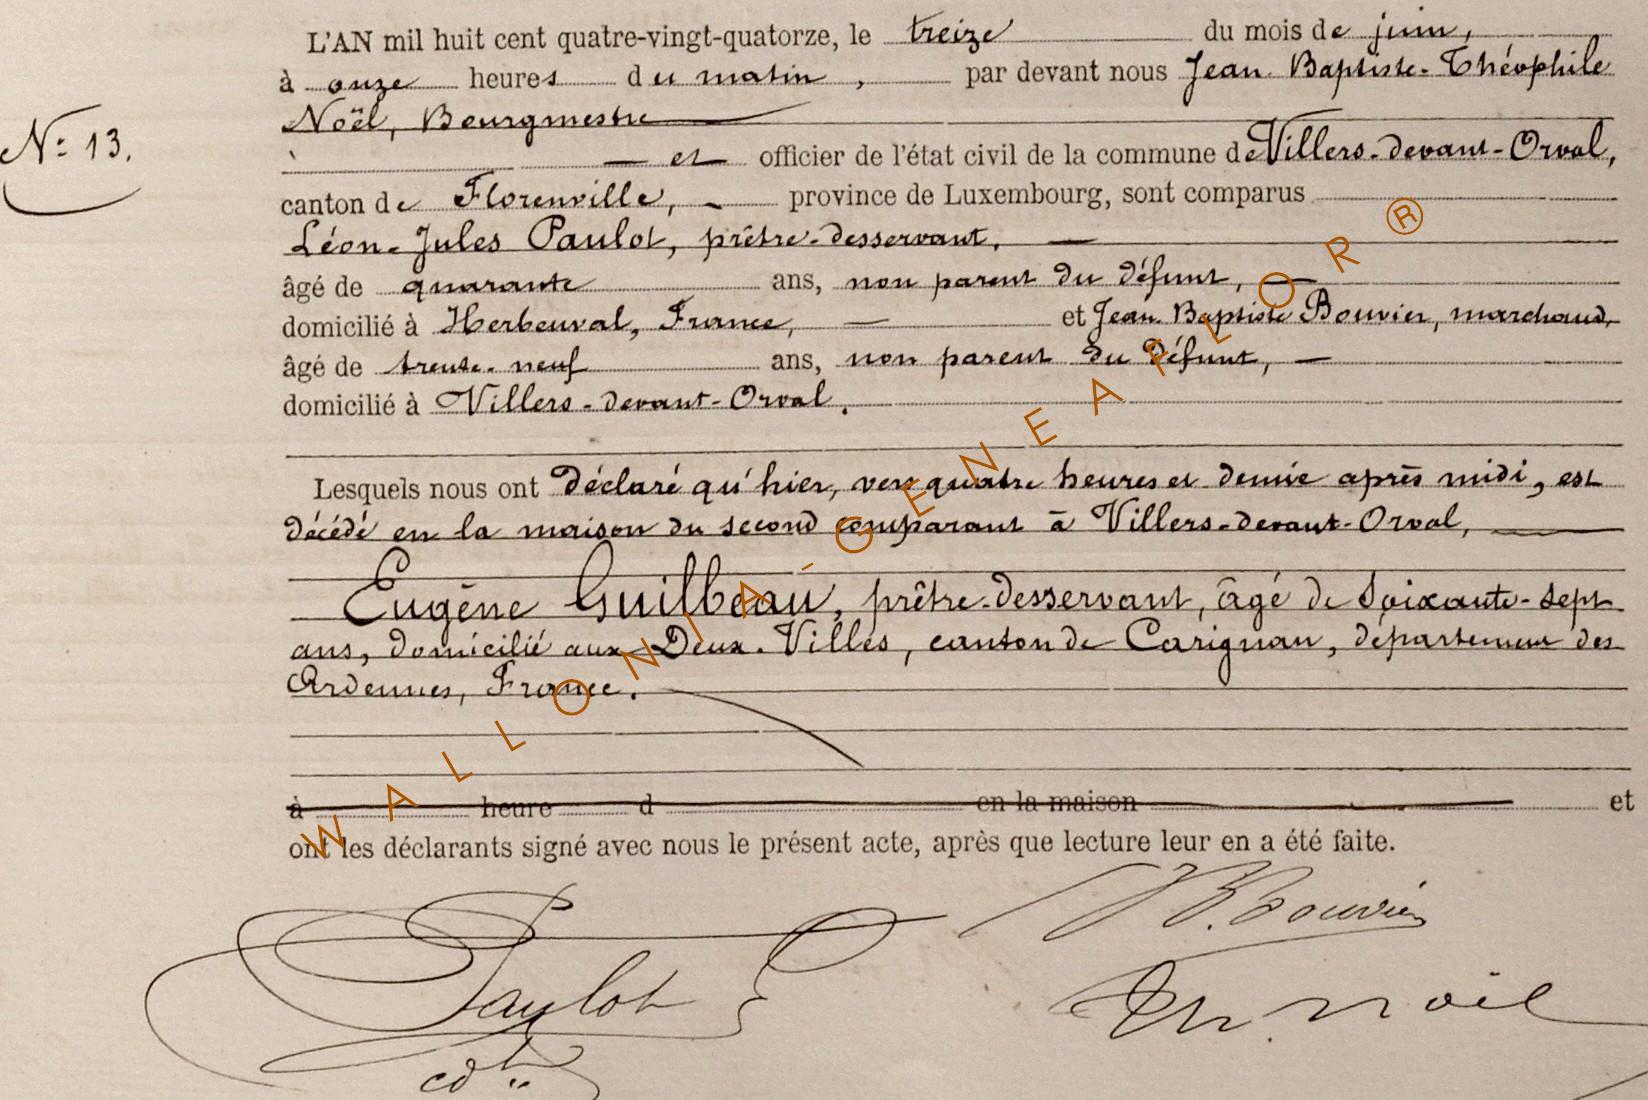 L'AN mil huit cent quatre-vingt-quatorze, le treize du mois de juin,
à onze heures du matin, par devant nous Jean-Baptiste-Théophile
Noël, Bourgmestre
N° 13.
et officier de l'état civil de la commune de Villers-devant-Orval,
canton de Florenville, province de Luxembourg, sont comparus
Léon-Jules Paulot, prêtre-desservant,
âgé de quarante ans, non parent du défunt,
domicilié à Herbeuval, France, et Jean-Baptiste Bouvier, marchand,
âgé de trente-neuf ans, non parent du défunt,
domicilié à Villers-devant-Orval.
Lesquels nous ont déclaré qu'hier, vers quatre heures et demie après midi, est
décédé en la maison du second comparant à Villers-devant-Orval,
Eugène Guilbeau, prêtre-desservant, âgé de soixante-sept
ans, domicilié aux Deux-Villes, canton de Carignan, département des
Ardennes, France.
à heure d en la maison et
ont les déclarants signé avec nous le présent acte, après que lecture leur en a été faite.
JB. Bouvier
Paulot
Th. Noël
WALLONIA-GENEAFLOR®